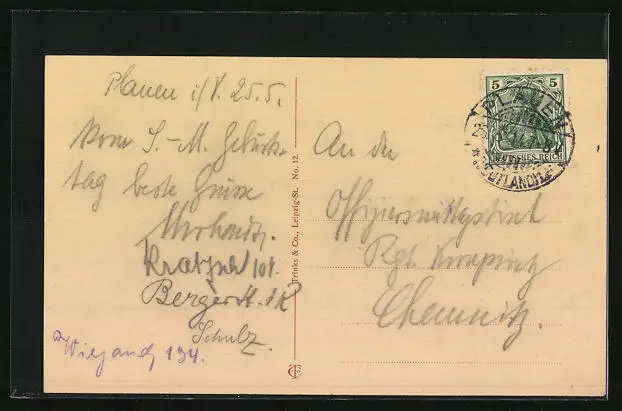 Plauen i/V. 25.5.
vom S.-M. Geburts-
tag beste Grüsse
Kratzsch 101.
Berger
Schulz
Wiegand 134.
Trinks & Co., Leipzig-St. No. 12.
5 5
DEUTSCHES REICH
PLAUEN
(VOGTLAND)
An den
Offiziersmittagstisch
Rgt. Kronprinz
Chemnitz.